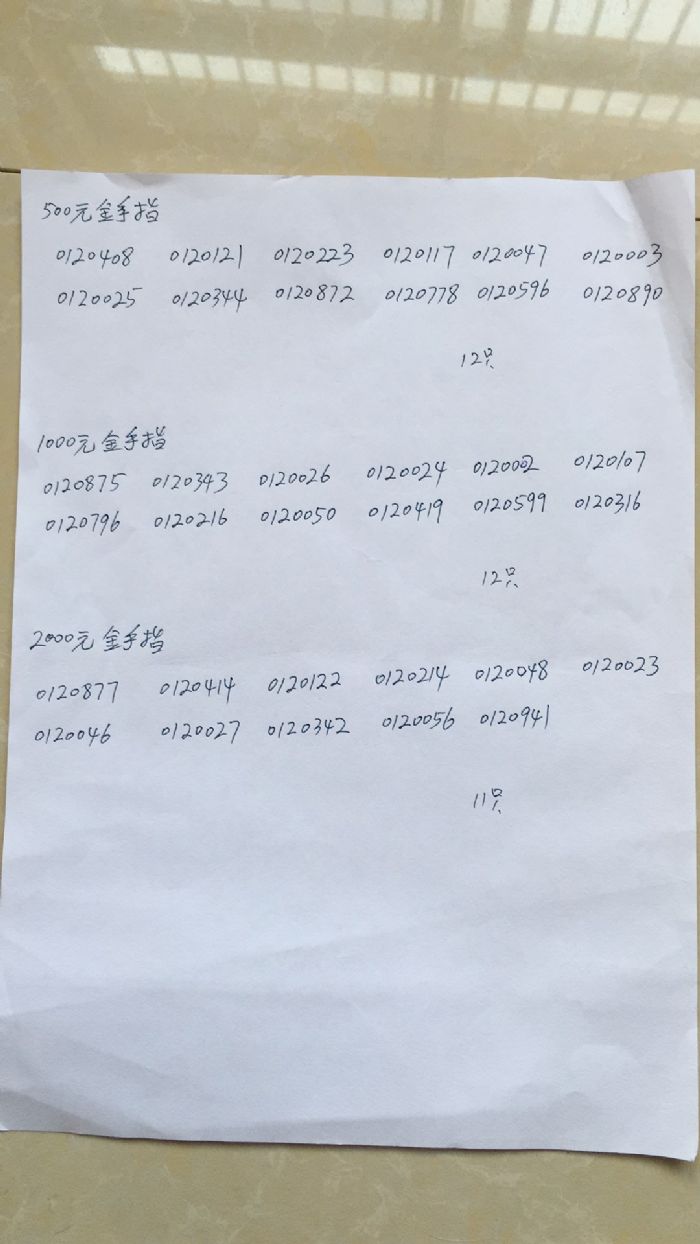 500元金手挡
0120408 0120121 0120223 0120117 0120047 0120003
0120025 0120344 0120872 0120778 0120596 0120890
12只
1000元金手挡
0120875 0120343 0120026 0120024 0120002 0120107
0120796 0120216 0120050 0120419 0120599 0120316
12只
2000元金手挡
0120877 0120414 0120122 0120214 0120048 0120023
0120046 0120027 0120342 0120056 0120941
11只